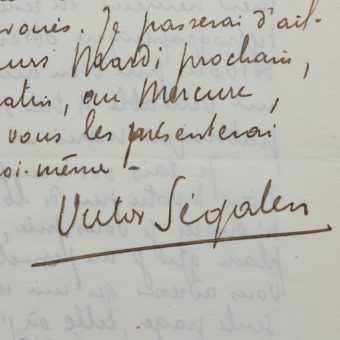 roués. Je passerai d'ail-
urs Maardi prochain,
atin, au Mercure,
vous les présenterai
oi-même -
Victor Ségalen